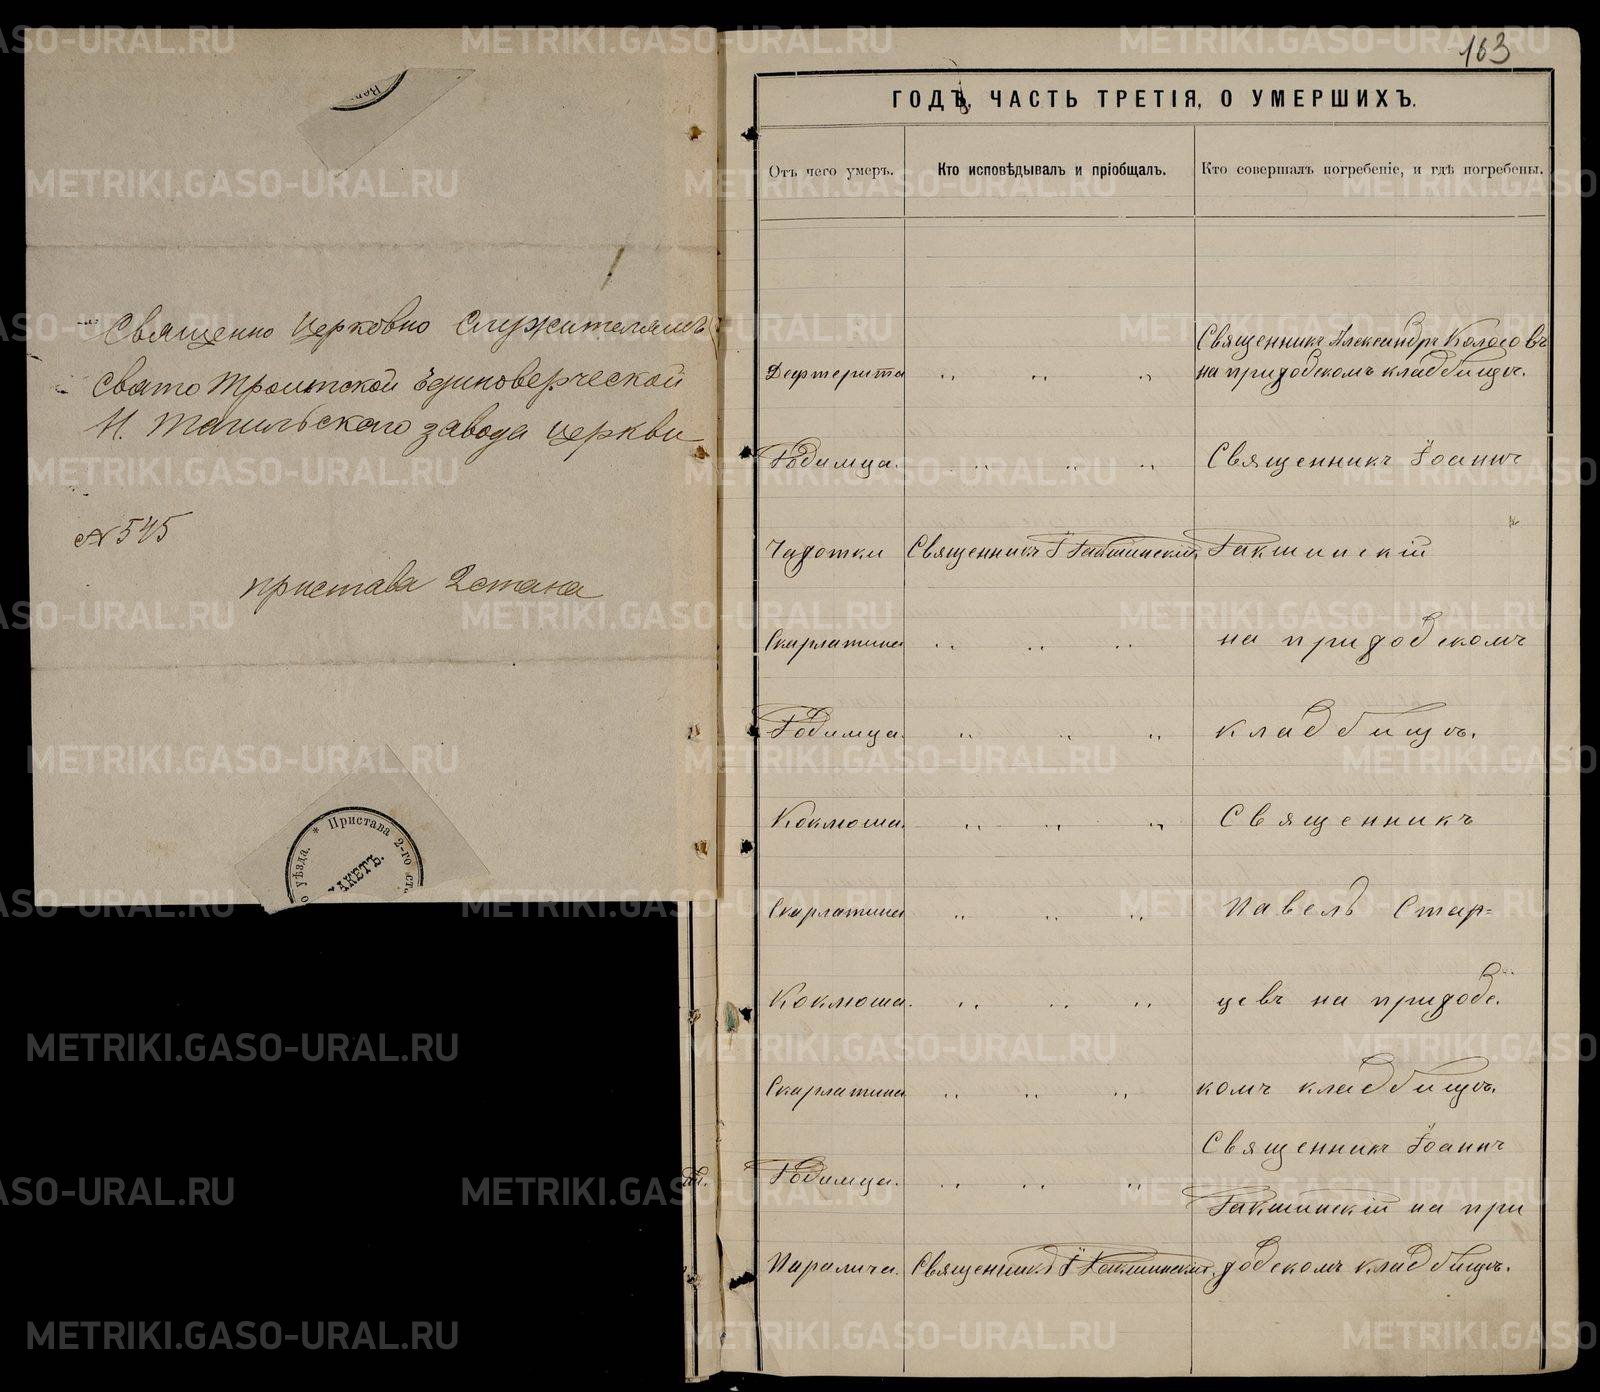 Священно Церковно Служителямъ
Свято Троитской Единоверческой
Н. Тагильскаго завода церкви
№ 545
пристава 2 стана
* Пристава 2-го ст.
уѣзда.
АКЕТЪ.
163
ГОДѢ, ЧАСТЬ ТРЕТІЯ, О УМЕРШИХЪ.
Отъ чего умеръ. Кто исповѣдывалъ и пріобщалъ. Кто совершалъ погребеніе, и гдѣ погребены.
Священникъ Александръ Колосовъ
Дефтерита на приходскомъ кладбищѣ.
Родимца. Священникъ Іоаннъ
Чахотки Священникъ І Гакшинскій Гакшинскій
Скарлатина на приходскомъ
Родимца. кладбищѣ.
Коклюша. Священникъ
Скарлатина Павелъ Стар=
Коклюша. цевъ на приходс.
Скарлатина комъ кладбищѣ.
Священникъ Іоаннъ
Родимца.
Гакшинскій на при
Паралича. Священникъ І Гакшинскій ходскомъ кладбищѣ.
METRIKI.GASO-URAL.RU